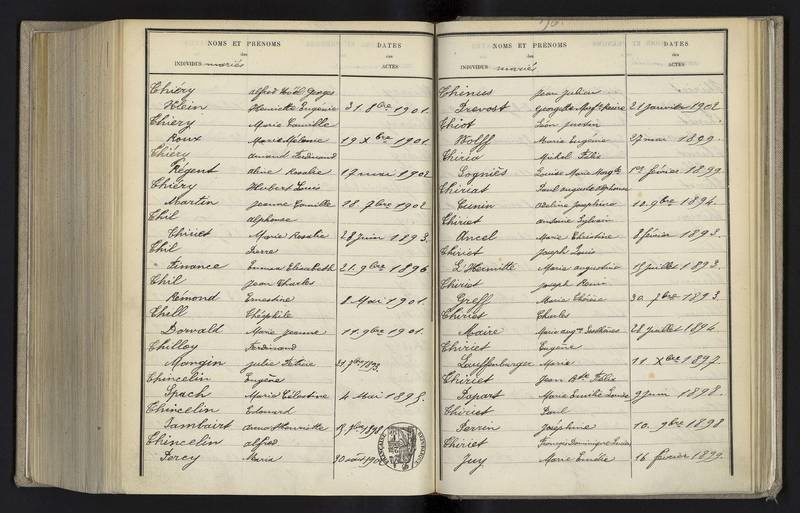 NOMS ET PRÉNOMS
des
INDIVIDUS mariés
DATES
des
ACTES
Thiéry alfred Georges
Klein Henriette Eugénie 31. 8bre 1901.
Thiery Marie Camille
Roux Marie Mélanie 19 Xbre 1901.
Thiéry armand Ferdinand
Régent aline Rosalie 17 mai 1902
Thiéry Herbert Louis
Martin Jeanne Camille 18. 7bre 1902.
Thil alphonse
Thiriet Marie Rosalie 28 juin 1893.
Thil Pierre
Finance Emma Elisabeth 21. 9bre 1896
Thil Jean Charles
Rémond Ernestine 8 Mai 1901.
Thill Théophile
Dorvald Marie Jeanne 11. 9bre 1901.
Thilloy Ferdinand
Mongin Julie
Thincelin Eugène
Spach Marie Célestine 4 Mai 1895.
Thincelin Edouard
Jambart anne Henriette
Thincelin alfred
Percy Maria
NOMS ET PRÉNOMS
des
INDIVIDUS mariés
DATES
des
ACTES
Jean Julien
Prevost Georgette Reine 21 janvier 1902
Thiot Léon Justin
Wolff Marie Eugénie 27 mai 1899.
Michel Félix
Louise Marie Margte 1er février 1899
Thiriat Paul auguste alphonse
Cunin Adeline Joséphine 10. 9bre 1894.
Thiriet antoine Sylvain
Ancel Marie Christine 8 février 1893.
Thiriet Joseph Louis
L'Hermitte Marie augustine 15 juillet 1893.
Thiriet Joseph René
Greff Marie Thérèse 30. 7bre 1893.
Thiriet Charles
Maire Marie 28 juillet 1894
Thiriet Eugène
Lauffenburger Maria 11. Xbre 1897.
Thiriet Jean Bte Félix
Papart Marie Emilie Louise 9 juin 1898.
Thiriet Paul
Perrin Joséphine 10. 9bre 1898
Thiriet François Dominique Lucien
Juy Marie Emélie 16 février 1899.